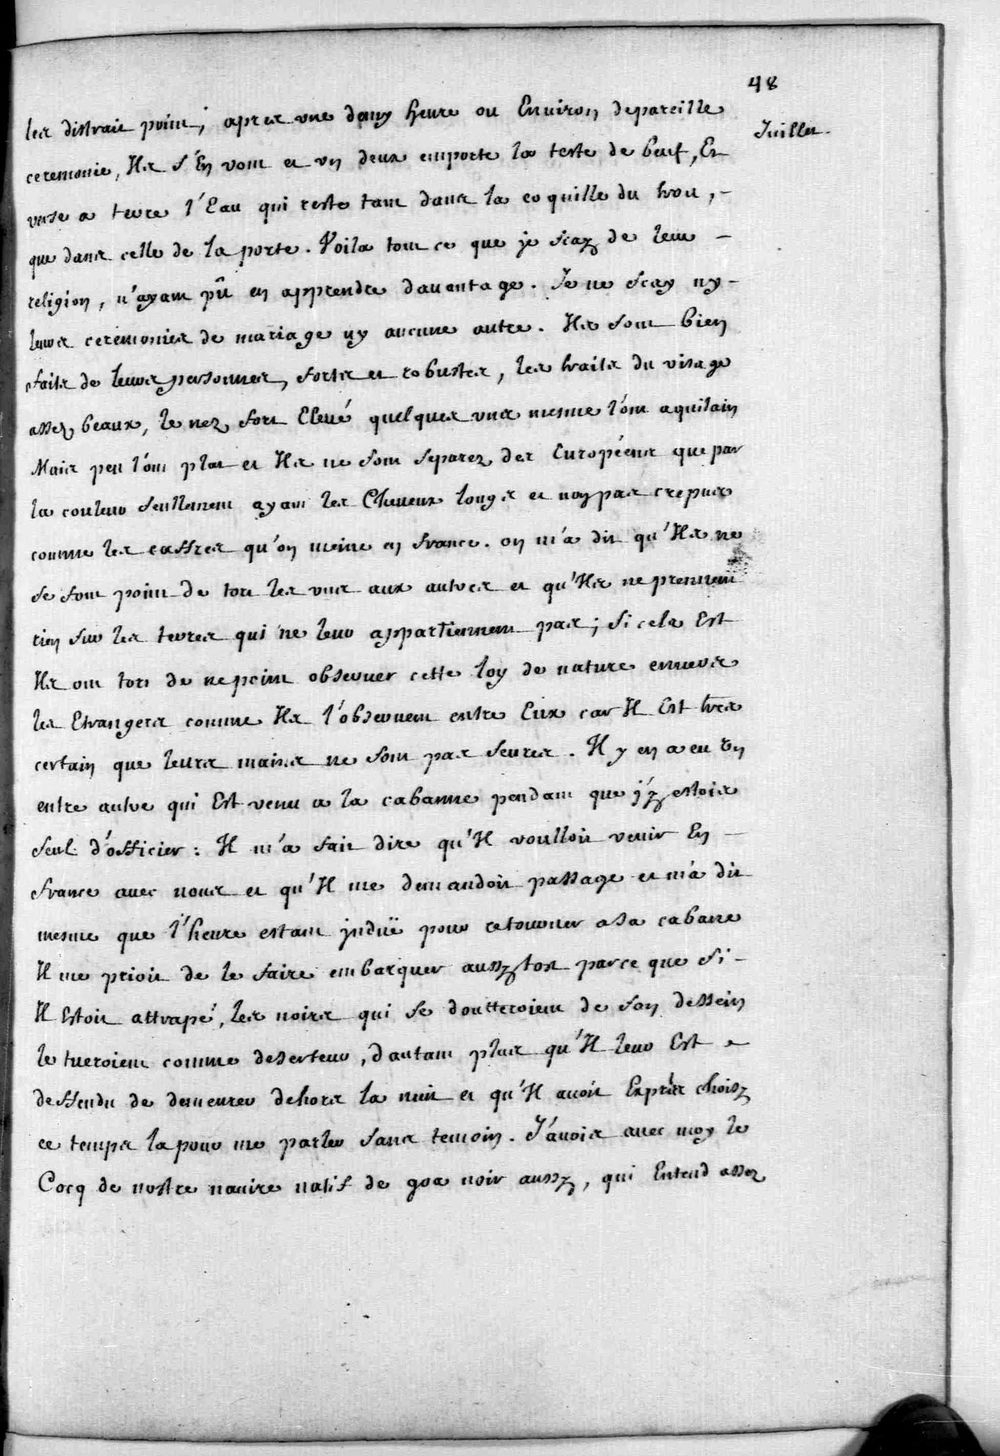 48
Juillet.
les distrait point; apres une demy heure ou Environ depareille
ceremonie, Ils s'En vont et un deux emporte la teste de beuf, Et
verse a terre l'Eau qui reste tant dans la coquille du trou,-
que dans celle de la porte. Voila tout ce que je scay de leur -
religion, n'ayant pû en apprendre davantage. Je ne scay ny-
leurs ceremonies de mariage ny aucune autre. Ils sont bien
faits de leurs personnes, forts et robustes, les traits du visage
assez beaux, le nez fort Elevé quelques uns mesme l'ont aquilain
Mais peu l'ont plat et Ils ne sont separez des Européens que par
la couleur seullement ayant les Cheveux longs et non pas crepus
comme les caffres qu'on meine en france. on m'a dit qu'Ils ne
se font point de tort les uns aux autres et qu'Ils ne prennent
rien sur les terres qui ne leur appartiennent pas; si cela Est
Ils ont tort de ne point observer cette loy de nature envers
les Etrangers comme Ils l'observent entre Eux car Il Est tres
certain que leurs mains ne sont pas seures. Il y en a eu Un
entre autre qui Est venu a la cabanne pendant que j'y estois
seul d'officier: Il m'a fait dire qu'Il voulloit venir En -
france avec nous et qu'Il me demandoit passage et m'a dit
mesme que l'heure estant induë pour retourner a sa cabane
Il me prioit de le faire embarquer aussytost parce que si -
Il Estoit attrapé, les noirs qui se doutteroient de son dessein
le tueroient comme deserteur, d'autant plus qu'Il leur Est -
deffendu de demeurer dehors la nuit et qu'Il avoit Exprès choisy
ce temps la pour me parler sans temoin. J'avois avec moy le
Cocq de nostre navire natif de goa noir aussy, qui Entend assez